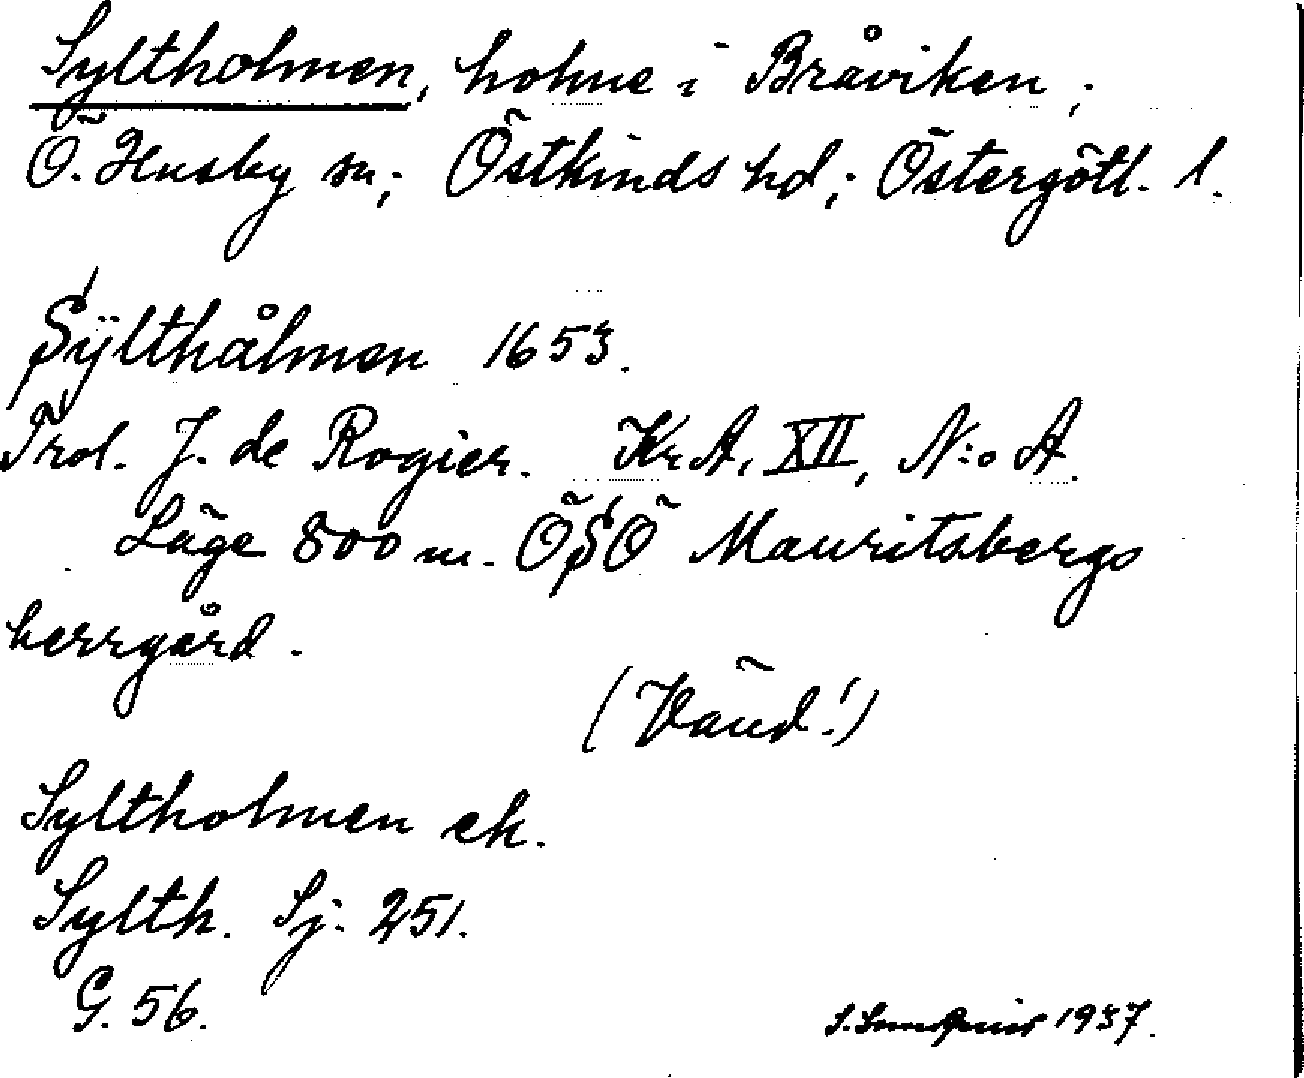 Syltholmen, holme i Bråviken,
Ö. Husby sn; Östkinds hd; Östergötl. l.
Sÿlthålmen 1653.
Trol. J. de Rogier. Kr.A. XII, N:o A.
Läge 800 m. ÖSÖ Mauritsbergs
herrgård.
(Vänd!)
Syltholmen ek.
Sylth. Sj. 251.
G. 56.
1937.